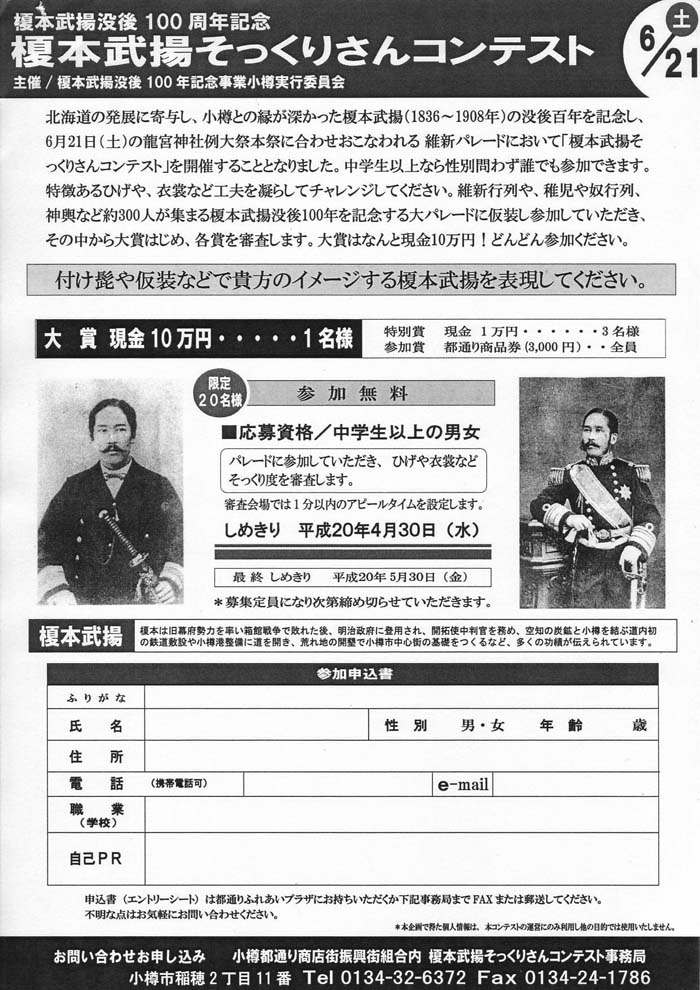 榎本武揚没後100周年記念
榎本武揚そっくりさんコンテスト
主催/榎本武揚没後100年記念事業小樽実行委員会
6/21 土
北海道の発展に寄与し、小樽との縁が深かった榎本武揚(1836～1908年)の没後百年を記念し、
6月21日(土)の龍宮神社例大祭本祭に合わせおこなわれる 維新パレードにおいて「榎本武揚そ
っくりさんコンテスト」を開催することとなりました。中学生以上なら性別問わず誰でも参加できます。
特徴あるひげや、衣裳など工夫を凝らしてチャレンジしてください。維新行列や、稚児や奴行列、
神輿など約300人が集まる榎本武揚没後100年を記念する大パレードに仮装し参加していただき、
その中から大賞はじめ、各賞を審査します。大賞はなんと現金10万円！どんどん参加ください。
付け髭や仮装などで貴方のイメージする榎本武揚を表現してください。
大　賞　現金10万円・・・・・1名様
特別賞　現金　1万円・・・・・・3名様
参加賞　都通り商品券(3,000円)・・全員
限定
20名様
参 加 無 料
■応募資格／中学生以上の男女
パレードに参加していただき、ひげや衣裳など
そっくり度を審査します。
審査会場では1分以内のアピールタイムを設定します。
しめきり　平成20年4月30日（水）
最終 しめきり　平成20年5月30日（金）
＊募集定員になり次第締め切らせていただきます。
榎本武揚
榎本は旧幕府勢力を率い箱館戦争で敗れた後、明治政府に登用され、開拓使中判官を務め、空知の炭鉱と小樽を結ぶ道内初
の鉄道敷設や小樽港整備に道を開き、荒れ地の開墾で小樽市中心街の基礎をつくるなど、多くの功績が伝えられています。
参加申込書
ふりがな
氏　名
性　別　男・女　年　齢　歳
住　所
電　話　(携帯電話可)　e-mail
職　業
(学校)
自己PR
申込書（エントリーシート）は都通りふれあいプラザにお持ちいただくか下記事務局までFAXまたは郵送してください。
不明な点はお気軽にお問い合わせください。
＊本企画で得た個人情報は、本コンテストの運営にのみ利用し他の目的では使用いたしません。
お問い合わせお申し込み　小樽都通り商店街振興組合内 榎本武揚そっくりさんコンテスト事務局
小樽市稲穂2丁目11番　Tel 0134-32-6372　Fax 0134-24-1786